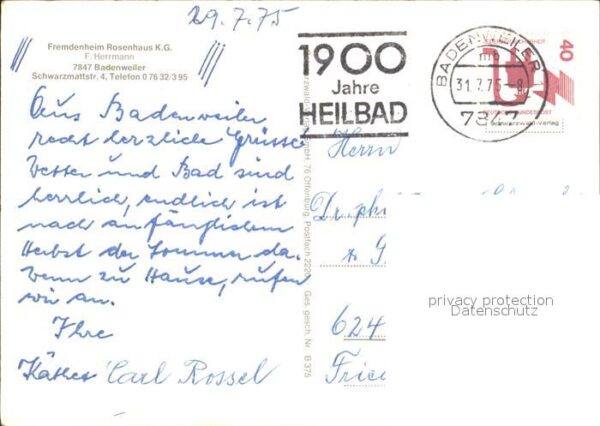 29.7.75
Fremdenheim Rosenhaus K.G.
F. Herrmann
7847 Badenweiler
Schwarzmattstr. 4, Telefon 0 76 32/3 95
Aus Badenweiler
recht herzliche Grüsse
Wetter und Bad sind
herrlich, endlich ist
nach anfänglichem
Herbst der Sommer da.
Wenn zu Hause, rufen
wir an.
Ihre
Käthe Carl Rossel
1900
Jahre
HEILBAD
BADENWEILER 1
mb
31.7.75-8
7847
40
DEUTSCHE BUNDESPOST
Schwarzwald-Verlag
76 Offenburg, Postfach
Ges. gesch. Nr. B 375
Herrn
Dr. phil
624
privacy protection
Datenschutz